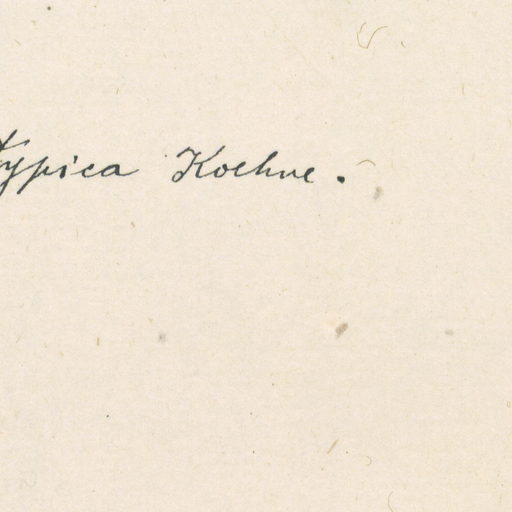 typica Koehne.